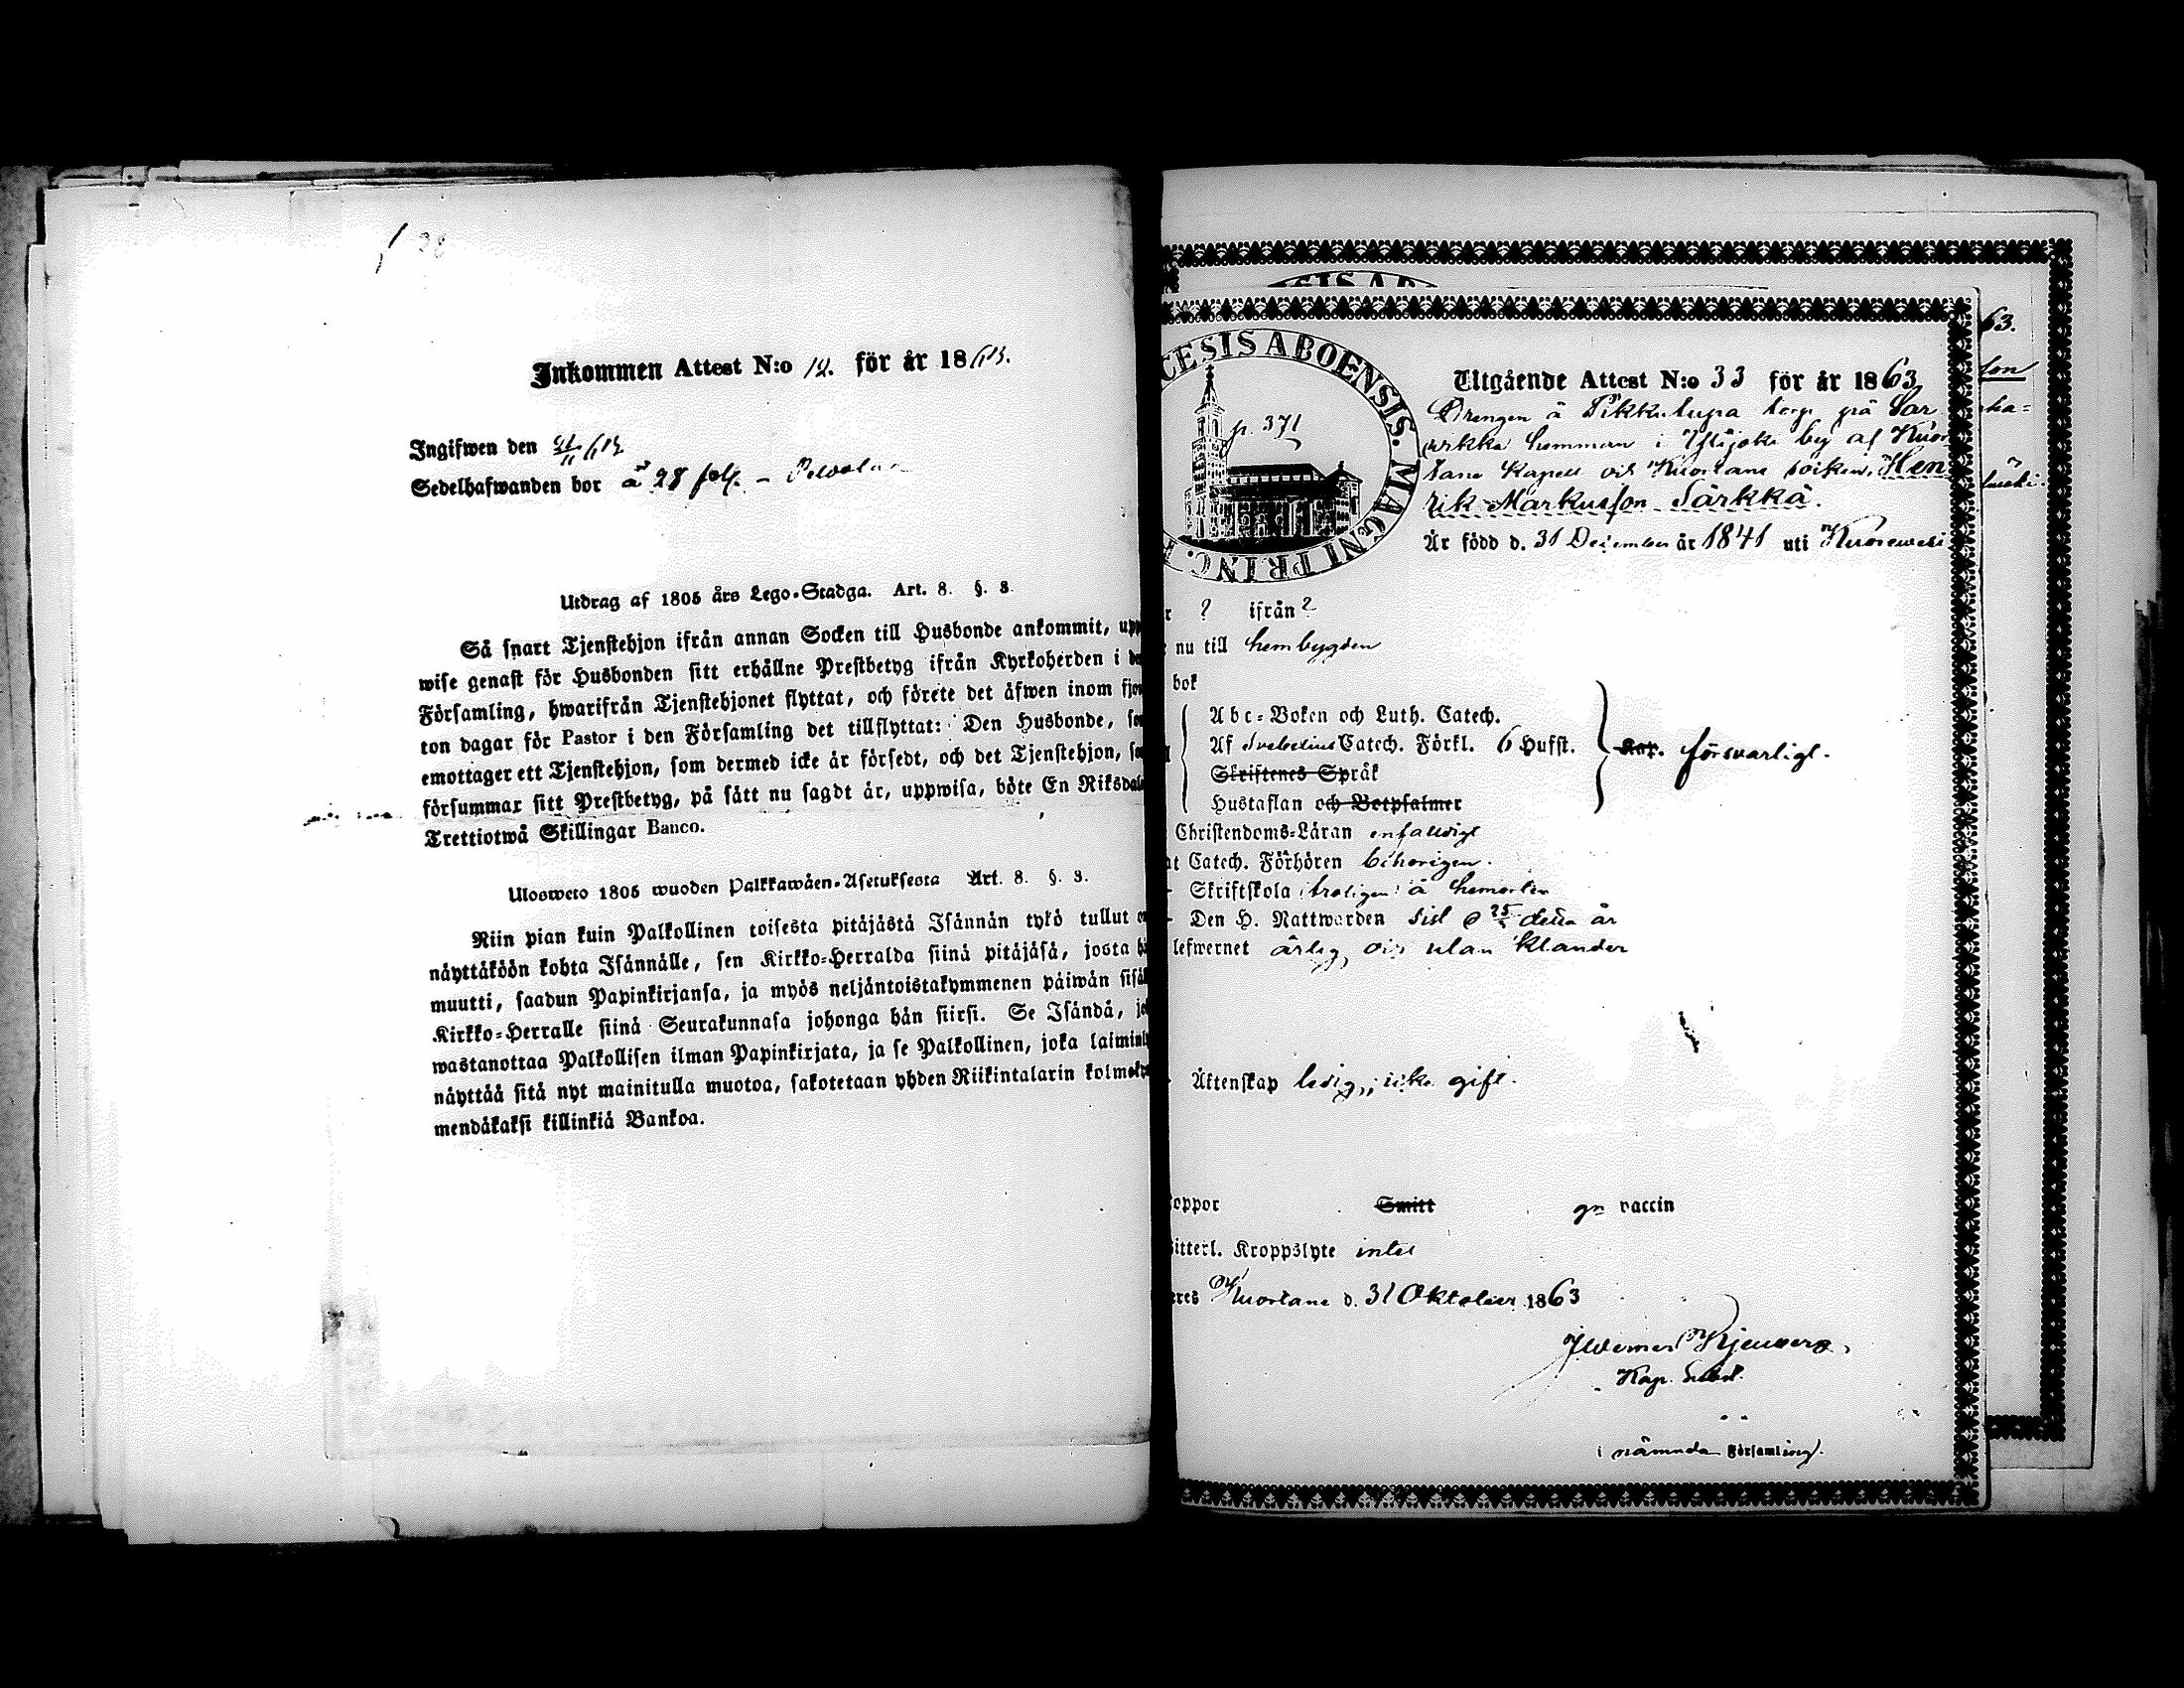 28
Inkommen Attest N:o 12. för år 1863.
Ingifwen den
Sedelhafwanden bor å 28
Utdrag af 1805 års Lego-Stadga. Art. 8. §. 3.
Så snart Tjenstehjon ifrån annan Socken till Husbonde ankommit, upp
wise genast för Husbonden sitt erhållne Prestbetyg ifrån Kyrkoherden i de
Församling, hwarifrån Tjenstehjonet flyttat, och förete det äfwen inom fjor
ton dagar för Pastor i den Församling det tillflyttat: Den Husbonde, so
emottager ett Tjenstehjon, som dermed icke är försedt, och det Tjenstehjon, so
försummar sitt Prestbetyg, på sätt nu sagdt är, uppwisa, böte En Riksdal
Trettiotwå Skillingar Banco.
Ulosweto 1805 wuoden Palkkawäen-Asetuksesta Art. 8. §. 3.
Niin pian kuin Palkollinen toisesta pitäjästä Isännän tykö tullut on
näyttäköön kohta Isännälle, sen Kirkko-Herralda siinä pitäjäsä, josta hä
muutti, saadun Papinkirjansa, ja myös neljäntoistakymmenen päiwän sisäl
Kirkko-Herralle siinä Seurakunnasa johonga hän siirsi. Se Isändä, jo
wastanottaa Palkollisen ilman Papinkirjata, ja se Palkollinen, joka laiminly
näyttää sitä nyt mainitulla muotoa, sakotetaan yhden Riikintalarin kolmeky
mendäkaksi killinkiä Bankoa.
CESIS ABOENSIS. MAGNI PRINC.
p. 371
Utgående Attest N:o 33 för år 1863
Drengen å Pikkutupa torp på Sar
arkka hemman i Ylijoki by af Kuor
tane Kapell och Kuortane socken, Hen
rik Markusson Särkkä.
Är född d. 31 December år 1841 uti Kuorewesi
? ifrån ?
nu till hembygden
bok
Abc-Boken och Luth. Catech.
Af Svebelius Catech. Förkl. 6 Hufst. försvarligt.
Skriftenes Språk
Hustaflan och Betpsalmer
Christendoms-Läran enfaldigt
Catech. Förhören behörigen.
Skriftskola troligen å hemorten
Den H. Nattwarden sist d 25 detta år
lefwernet ärlig, och utan klander
Äktenskap ledig, icke gift.
koppor Smitt gn vaccin
Kroppslyte intet
Kuortane d. 31 Oktober 1863
Kap. Subst.
i nämnda Församling.
63.